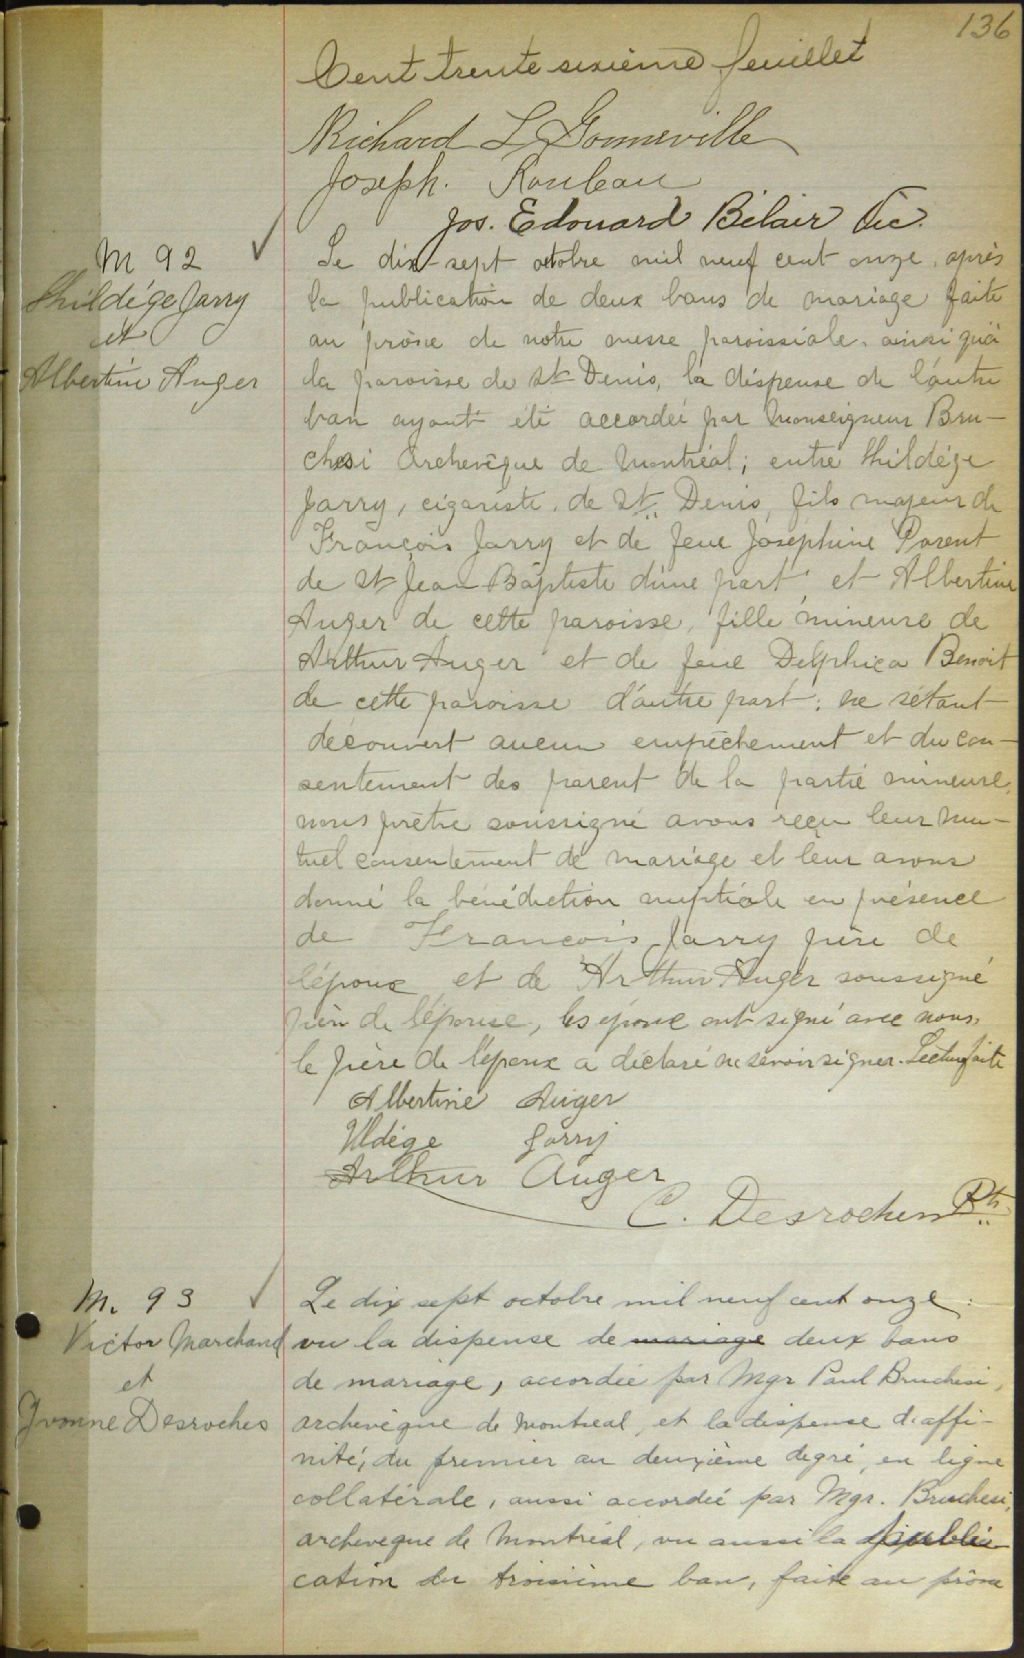 136
Cent trente sixième feuillet
Richard L Gonneville
Joseph. Rouleau
Jos. Edouard Bélair Vic.
M 92
Thildége Jarry
et
Albertine Auger
Le dix-sept octobre mil neuf cent onze, après
la publication de deux bans de mariage faite
au prône de notre messe paroissiale, ainsi qu'à
la paroisse de St Denis, la dispense de l'autre
ban ayant été accordée par Monseigneur Bru-
chesi Archevêque de Montréal; entre Thildége
Jarry, cigariste, de St Denis, fils majeur de
François Jarry et de feue Joséphine Parent
de St Jean Baptiste d'une part, et Albertine
Auger de cette paroisse, fille mineure de
Arthur Auger et de feue Delphica Benoit
de cette paroisse d'autre part; ne s'étant
découvert aucun empêchement et du con-
sentement des parent de la partie mineure,
nous prêtre soussigné avons reçu leur mu-
tuel consentement de mariage et leur avons
donné la bénédiction nuptiale en présence
de François Jarry père de
l'époux et de Arthur Auger soussigné
père de l'épouse, les époux ont signé avec nous,
le père de l'époux a déclaré ne savoir signer. Lecture faite
Albertine Auger
Uldége Jarry
Arthur Auger
C. Desrochers Ptr
M. 93
Victor Marchand
et
Yvonne Desroches
Le dix sept octobre mil neuf cent onze:
vu la dispense de mariage deux bans
de mariage, accordée par Mgr Paul Bruchesi,
archevêque de Montreal, et la dispense d'affi-
nité, du premier au deuxième degré, en ligne
collatérale, aussi accordée par Mgr. Bruchesi,
archeveque de Montréal, vu aussi la publi-
cation du troisième ban, faite au prône